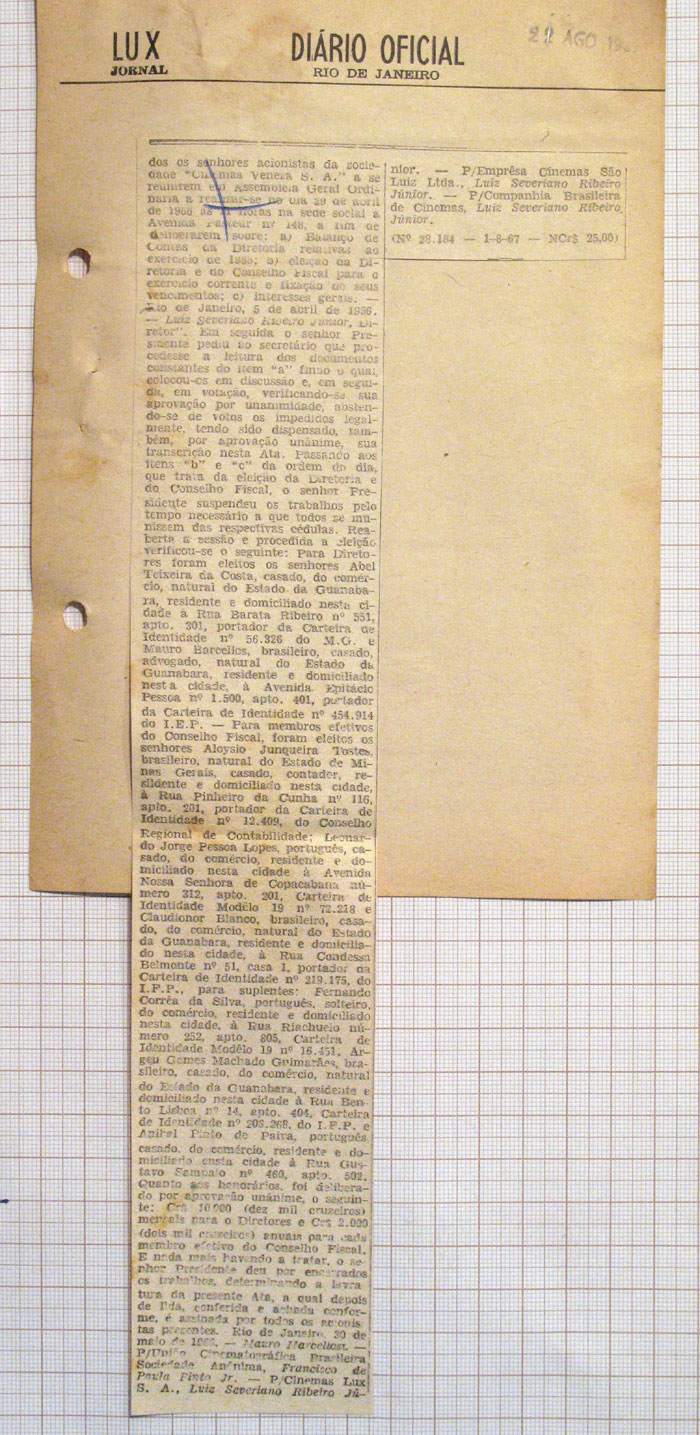 LUX
JORNAL
DIÁRIO OFICIAL
RIO DE JANEIRO
AGO
dos os senhores acionistas da socie-
dade "Cinemas Veneza S. A." a se
reunirem em Assembléia Geral Ordi-
nária a realizar-se no dia 29 de abril
de 1966 às horas na sede social à
Avenida Pasteur nº 148, a fim de
deliberarem sobre: a) Balanço de
Contas da Diretoria relativas ao
exercício de 1965; b) eleição da Di-
retoria e do Conselho Fiscal para o
exercício corrente e fixação de seus
vencimentos; c) interesses gerais. —
Rio de Janeiro, 5 de abril de 1966.
— Luiz Severiano Ribeiro Júnior, Di-
retor". Em seguida o senhor Pre-
sidente pediu ao secretário que pro-
cedesse a leitura dos documentos
constantes do item "a" findo o qual,
colocou-os em discussão e, em segui-
da, em votação, verificando-se sua
aprovação por unanimidade, absten-
do-se de votos os impedidos legal-
mente, tendo sido dispensado, tam-
bém, por aprovação unânime, sua
transcrição nesta Ata. Passando aos
itens "b" e "c" da ordem do dia,
que trata da eleição da Diretoria e
do Conselho Fiscal, o senhor Pre-
sidente suspendeu os trabalhos pelo
tempo necessário a que todos se mu-
nissem das respectivas cédulas. Rea-
berta a sessão e procedida a eleição
verificou-se o seguinte: Para Direto-
res foram eleitos os senhores Abel
Teixeira da Costa, casado, do comér-
cio, natural do Estado da Guanaba-
ra, residente e domiciliado nesta ci-
dade à Rua Barata Ribeiro nº 551,
apto. 301, portador da Carteira de
Identidade nº 56.326 do M.G. e
Mauro Barcellos, brasileiro, casado,
advogado, natural do Estado da
Guanabara, residente e domiciliado
nesta cidade, à Avenida Epitácio
Pessoa nº 1.500, apto. 401, portador
da Carteira de Identidade nº 454.914
do I.E.P. — Para membros efetivos
do Conselho Fiscal, foram eleitos os
senhores Aloysio Junqueira Tostes,
brasileiro, natural do Estado de Mi-
nas Gerais, casado, contador, re-
sildente e domiciliado nesta cidade,
à Rua Pinheiro da Cunha nº 116,
apto. 201, portador da Carteira de
Identidade nº 12.409, do Conselho
Regional de Contabilidade; Leonar-
do Jorge Pessoa Lopes, português, ca-
sado, do comércio, residente e do-
miciliado nesta cidade à Avenida
Nossa Senhora de Copacabana nú-
mero 312, apto. 201, Carteira de
Identidade Modêlo 19 nº 72.218 e
Claudionor Blanco, brasileiro, casa-
do, do comércio, natural do Estado
da Guanabara, residente e domicilia-
do nesta cidade, à Rua Condessa
Belmonte nº 51, casa 1, portador da
Carteira de Identidade nº 219.175, do
I.F.P., para suplentes: Fernando
Corrêa da Silva, português, solteiro,
do comércio, residente e domiciliado
nesta cidade, à Rua Riachuelo nú-
mero 252, apto. 805, Carteira de
Identidade Modêlo 19 nº 16.451, Ar-
geu Gomes Machado Guimarães, bra-
sileiro, casado, do comércio, natural
do Estado da Guanabara, residente e
domiciliado nesta cidade à Rua Ben-
to Lisboa nº 14, apto. 404, Carteira
de Identidade nº 203.268, do I.F.P. e
Anibal Pinto de Paiva, português,
casado, do comércio, residente e do-
miciliado nesta cidade à Rua Gus-
tavo Sampaio nº 460, apto. 502.
Quanto aos honorários, foi delibera-
do por aprovação unânime, o seguin-
te: Cr$ 10.000 (dez mil cruzeiros)
mensais para o Diretores e Cr$ 2.000
(dois mil cruzeiros) anuais para cada
membro efetivo do Conselho Fiscal.
E nada mais havendo a tratar, o se-
nhor Presidente deu por encerrados
os trabalhos, determinando a lavra
tura da presente Ata, a qual depois
de lida, conferida e achada confor-
me, é assinada por todos os acionis
tas presentes. Rio de Janeiro, 30 de
maio de 1966. — Mauro Marcellos. —
P/União Cinematográfica Brasileira
Sociedade Anônima, Francisco de
Paula Pinto Jr. — P/Cinemas Lux
S. A., Luiz Severiano Ribeiro Jú-
nior. — P/Emprêsa Cinemas São
Luiz Ltda., Luiz Severiano Ribeiro
Júnior. — P/Companhia Brasileira
de Cinemas, Luiz Severiano Ribeiro
Júnior.
(Nº 28.184 — 1-8-67 — NCr$ 25,00)